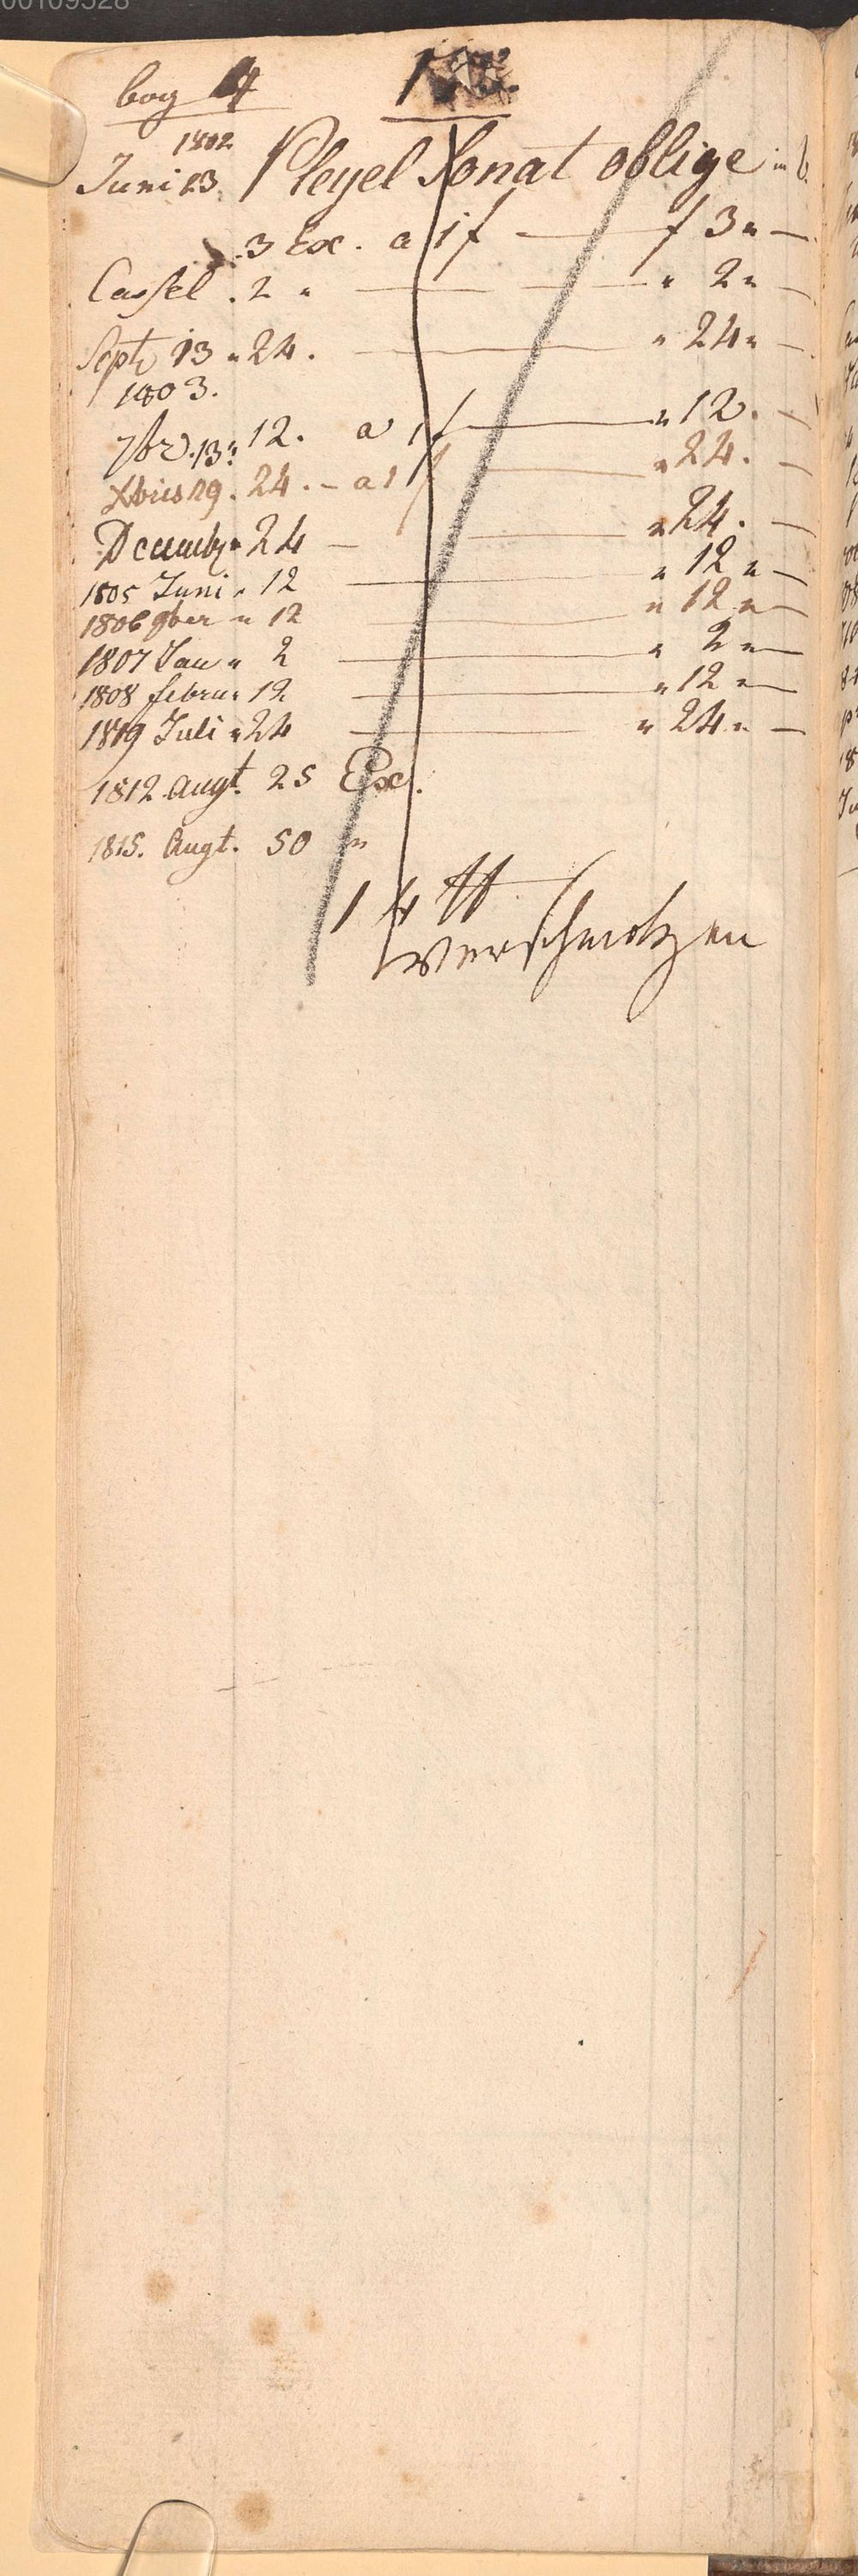 00109528
bog 4
1802
Juni 23. Pleyel Sonat oblige in b.
3 Ex. a 1 f — f 3 " —
Cassel . 2 " — — " 2 " —
Septr 13 " 24. — " 24 " —
1803.
7br. 13 " 12. a 1 f — " 12. —
Xbris 29. 24. — a 1 f — " 24. —
Decemb " 24 — — " 24. —
1805 Juni " 12 — " 12 " —
1806 9ber " 12 — " 12 " —
1807 Jan " 2 — " 2 " —
1808 febru " 12 — " 12 " —
1809 Juli " 24 — " 24 " —
1812. Augt. 25 Ex.
1815. Augt. 50 "
14 ℔
verschmolzen